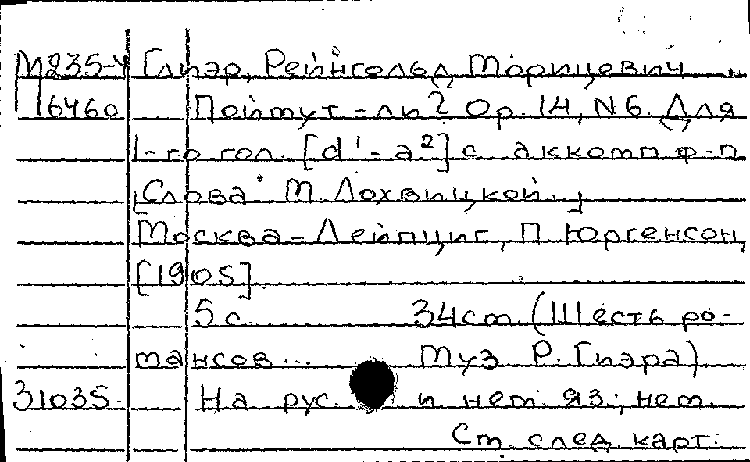 М235-4 Глиэр, Рейнгольд Морицевич
П6460 Поймут-ли? Op. 14, N 6. Для
1-го гол. [d¹-a²] с аккомп ф-п
[Слова М. Лохвицкой.]
Москва-Лейпциг, П. Юргенсон,
[1905]
5 с 34 см (Шесть ро-
мансов... Муз Р. Глиэра)
31035 На рус. и нем. яз.; нем.
См. след. карт.